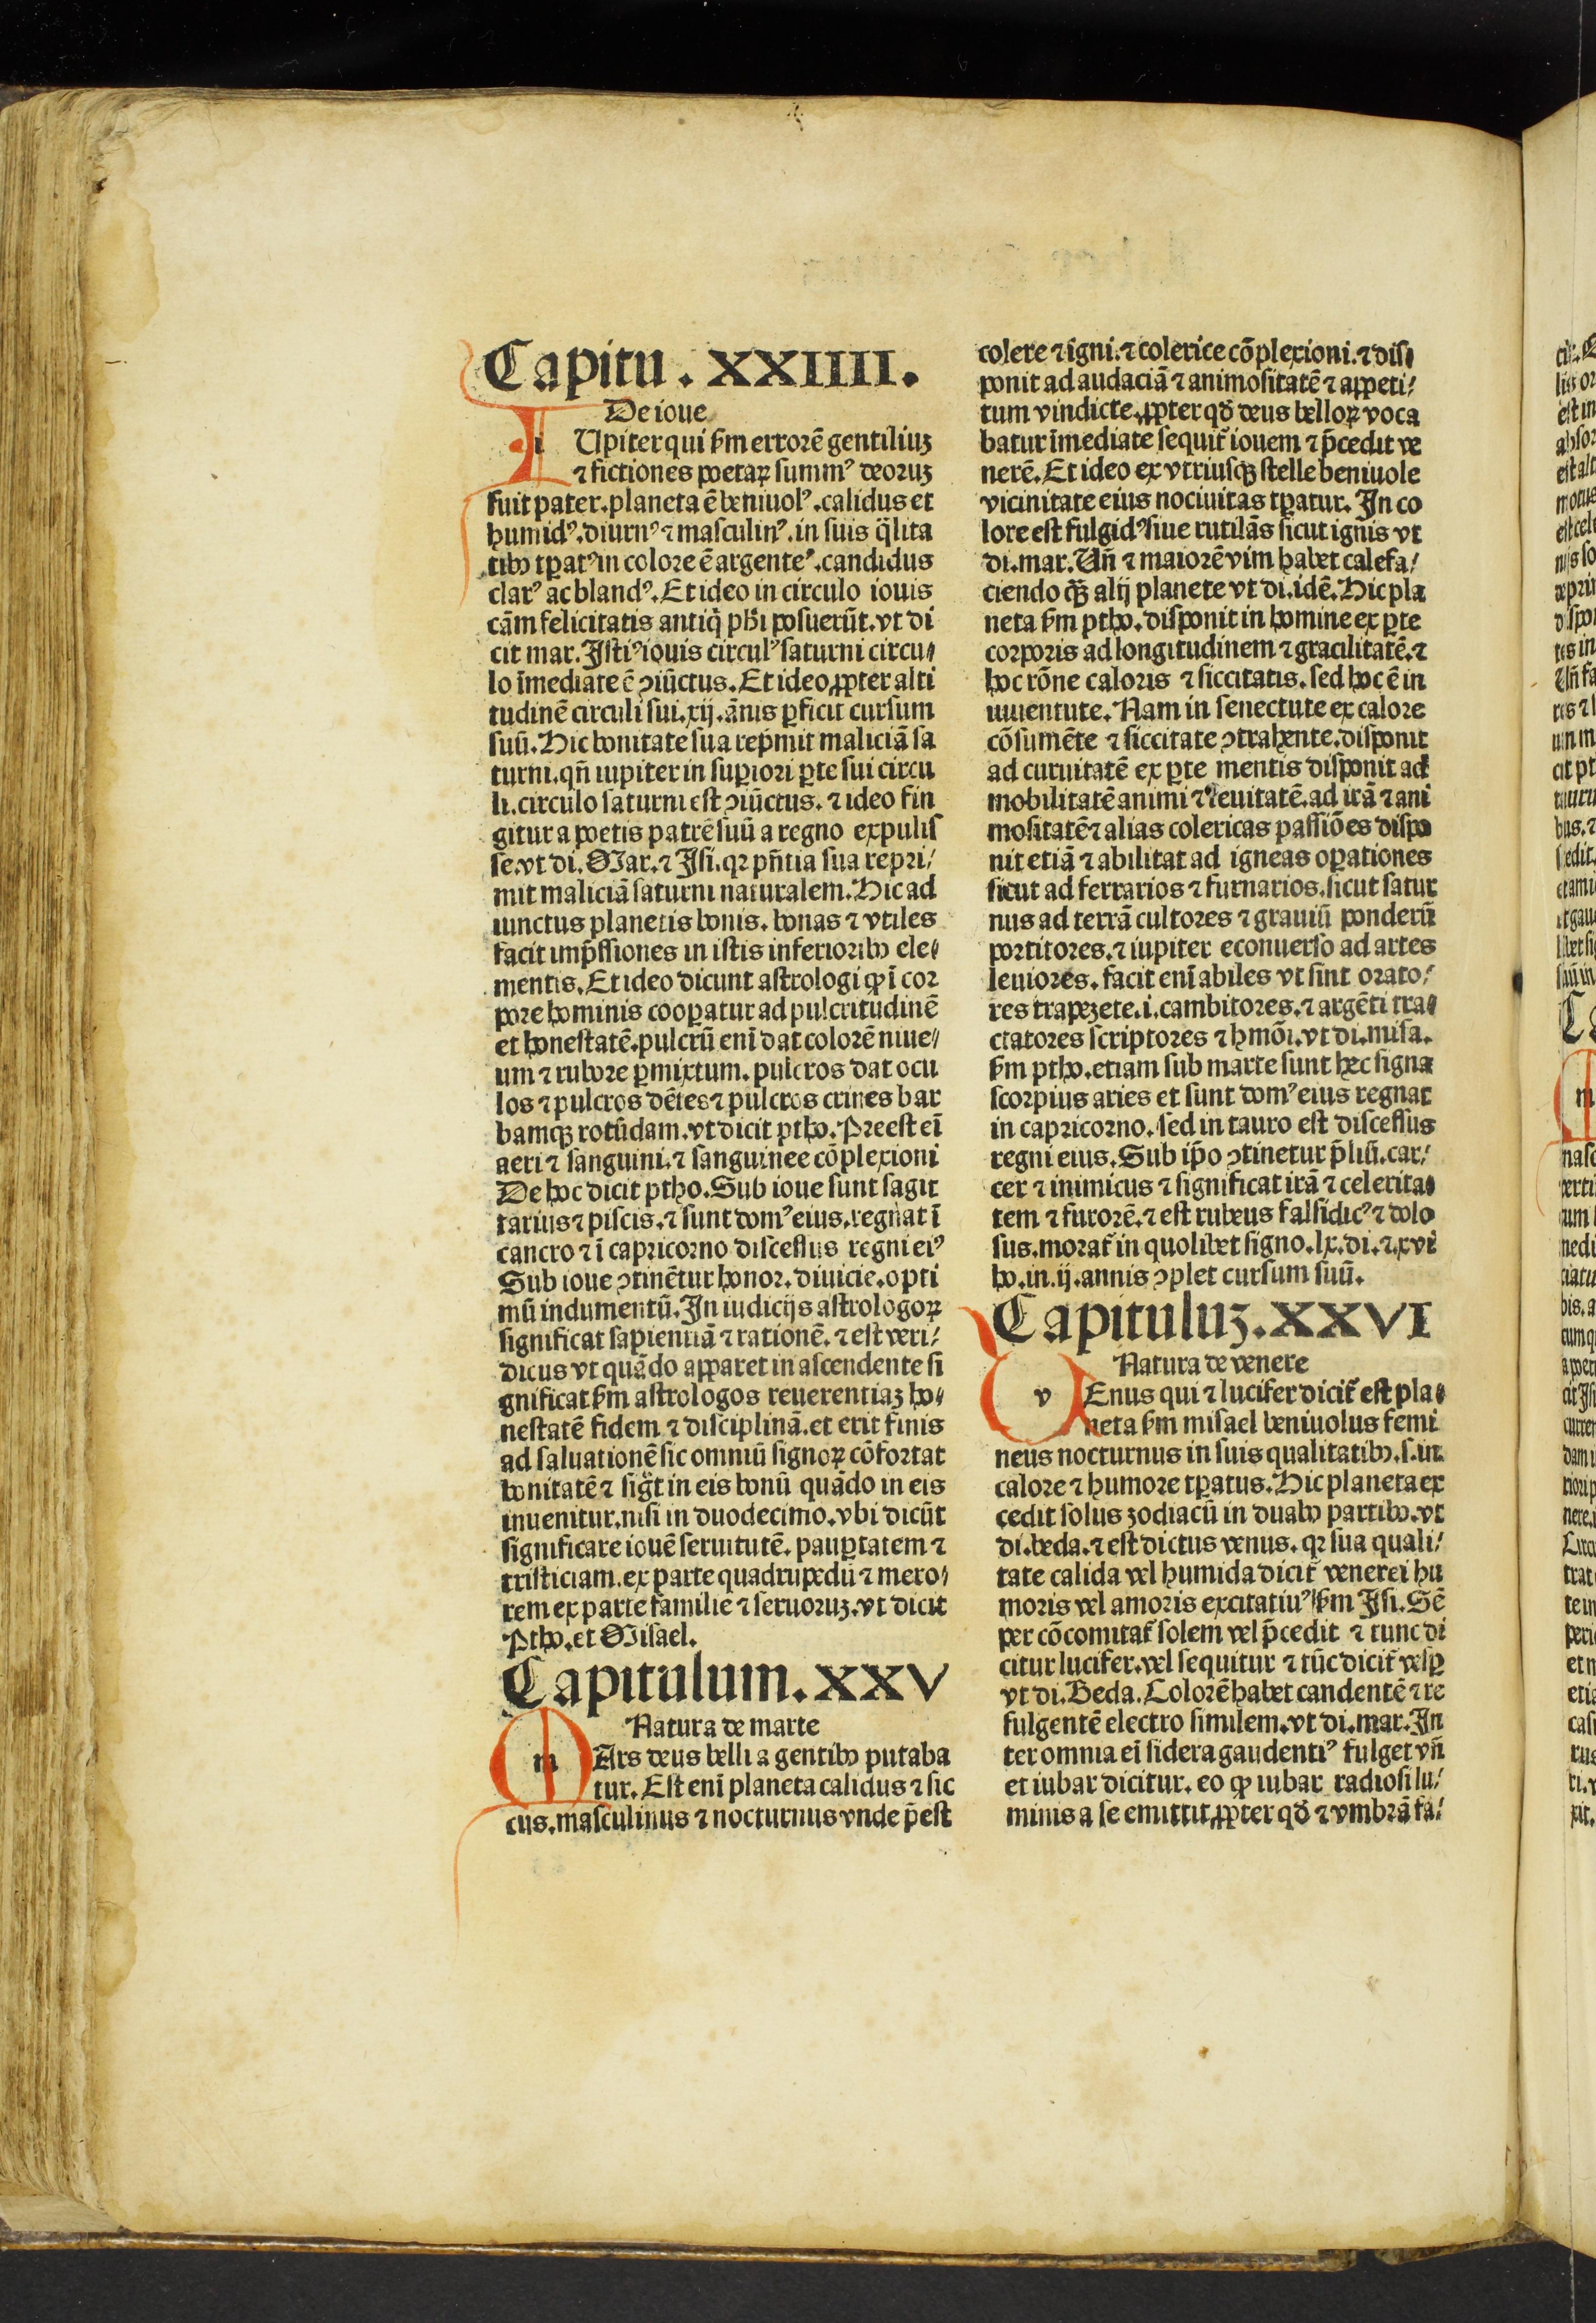 Capitu. XXIIII.
De ioue
iUpiter qui ẜm erroꝛē gentiliuʒ
⁊ fictiones poetaꝝ summꝰ deoꝛuʒ
fuit pater. planeta ē beniuolꝰ. calidus et
humidꝰ. diurnꝰ ⁊ masculinꝰ. in suis q̄lita
tibꝫ tꝑatꝰ in coloꝛe ē argenteꝰ. candidus
clarꝰ ac blandꝰ. Et ideo in circulo iouis
cām felicitatis antiq̇ pħi posuerūt. vt di
cit mar. Istiꝰ iouis circulꝰ saturni circu⸗
lo īmediate ē ↄiūctus. Et ideo ꝓpter alti
tudinē circuli sui. xij. ānis ꝑficit cursum
suū. Hic bonitate sua rep̄mit maliciā sa
turni. qn̄ iupiter in supioꝛi ꝑte sui circu
li. circulo saturni est ↄiūctus. ⁊ ideo fin
gitur a poetis patrē suū a regno expulis
se. vt di. Mar. ⁊ Isi. qꝛ pn̄tia sua repri/
mit maliciā saturni naturalem. Hic ad
iunctus planetis bonis. bonas ⁊ vtiles
facit imp̄ssiones in istis inferioꝛibꝫ ele⸗
mentis. Et ideo dicunt astrologi ꝙ ī coꝛ
poꝛe hominis cooꝑatur ad pulcritudinē
et honestatē. pulcrū enī dat coloꝛē niue/
um ⁊ ruboꝛe ꝑmixtum. pulcros dat ocu
los ⁊ pulcros dētes ⁊ pulcros crines bar
bamqꝫ rotūdam. vt dicit ptho. Preest eī
aeri ⁊ sanguini. ⁊ sanguinee cōplexioni
De hoc dicit ptho. Sub ioue sunt sagit
tarius ⁊ piscis. ⁊ sunt domꝰ eius. regnat ī
cancro ⁊ ī capꝛicoꝛno discessus regni eiꝰ
Sub ioue ↄtinētur honoꝛ. diuicie. opti
mū indumentū. In iudicijs astrologoꝝ
significat sapientiā ⁊ rationē. ⁊ est veri/
dicus vt quādo apparet in ascendente si
gnificat ẜm astrologos reuerentiaʒ ho⸗
nestatē fidem ⁊ disciplinā. et erit finis
ad saluationē sic omniū signoꝝ cōfoꝛtat
bonitatē ⁊ sigͣt in eis bonū quādo in eis
inuenitur. nisi in duodecimo. vbi dicūt
significare iouē seruitutē. pauꝑtatem ⁊
tristiciam. ex parte quadrupedū ⁊ mero⸗
rem ex parte familie ⁊ seruoꝛuʒ. vt dicit
Ptho. et Misael.
Capitulum. XXV
Natura de marte
mArs deus belli a gentibꝫ putaba
tur. Est enī planeta calidus ⁊ sic
cus. masculinus ⁊ nocturnus vnde p̄est
colere ⁊ igni. ⁊ colerice cōplexioni. ⁊ dis⸗
ponit ad audaciā ⁊ animositatē ⁊ appeti/
tum vindicte. ꝓpter qď deus belloꝝ voca
batur īmediate sequit̄ iouem ⁊ p̄cedit ve
nerē. Et ideo ex vtriusqꝫ stelle beniuole
vicinitate eius nociuitas tꝑatur. In co
loꝛe est fulgidꝰ siue rutilās sicut ignis vt
di. mar. Un̄ ⁊ maioꝛē vim habet calefa/
ciendo qꝫ̄ alij planete vt di. idē. Hic pla
neta ẜm ptho. disponit in homine ex ꝑte
coꝛpoꝛis ad longitudinem ⁊ gracilitatē. ⁊
hoc rōne caloꝛis ⁊ siccitatis. sed hoc ē in
iuuentute. Nam in senectute ex caloꝛe
cōsumēte ⁊ siccitate ↄtrahente. disponit
ad curuitatē ex ꝑte mentis disponit ad
mobilitatē animi ⁊ leuitatē. ad irā ⁊ ani
mositatē ⁊ alias colericas passiōes dispo
nit etiā ⁊ abilitat ad igneas oꝑationes
sicut ad ferrarios ⁊ furnarios. sicut satur
nus ad terrā cultoꝛes ⁊ grauiū ponderū
poꝛtitoꝛes. ⁊ iupiter econuerso ad artes
leuioꝛes. facit enī abiles vt sint oꝛato/
res trapezete. i. cambitoꝛes. ⁊ argēti tra⸗
ctatoꝛes scriptoꝛes ⁊ hmōi. vt di. misa.
ẜm ptho. etiam sub marte sunt hec signa
scoꝛpius aries et sunt domꝰ eius regnat
in capꝛicoꝛno. sed in tauro est discessus
regni eius. Sub ip̄o ↄtinetur p̄liū. car/
cer ⁊ inimicus ⁊ significat irā ⁊ celerita⸗
tem ⁊ furoꝛē. ⁊ est rubeus falsidicꝰ ⁊ dolo
sus. moꝛat̄ in quolibet signo. lx. di. ⁊. xvi
ho. in. ij. annis ↄplet cursum suū.
Capituluʒ. XXVI
Natura de venere
vEnus qui ⁊ lucifer dicit̄ est pla⸗
neta ẜm misael beniuolus femi
neus nocturnus in suis qualitatibꝫ. s. in
caloꝛe ⁊ humoꝛe tꝑatus. Hic planeta ex
cedit solus zodiacū in duabꝫ partibꝫ. vt
di. beda. ⁊ est dictus venus. qꝛ sua quali/
tate calida vel humida dicit̄ venerei hu
moꝛis vel amoꝛis excitatiuꝰ ẜm Isi. Sē
per cōcomitat̄ solem vel p̄cedit ⁊ tunc di
citur lucifer. vel sequitur ⁊ tūc dicit̄ vesꝑ
vt di. Beda. Coloꝛē habet candentē ⁊ re
fulgentē electro similem. vt di. mar. In
ter omnia eī sidera gaudentiꝰ fulget vn̄
et iubar dicitur. eo ꝙ iubar radiosi lu/
minis a se emittit. ꝓpter qď ⁊ vmbꝛā fa/